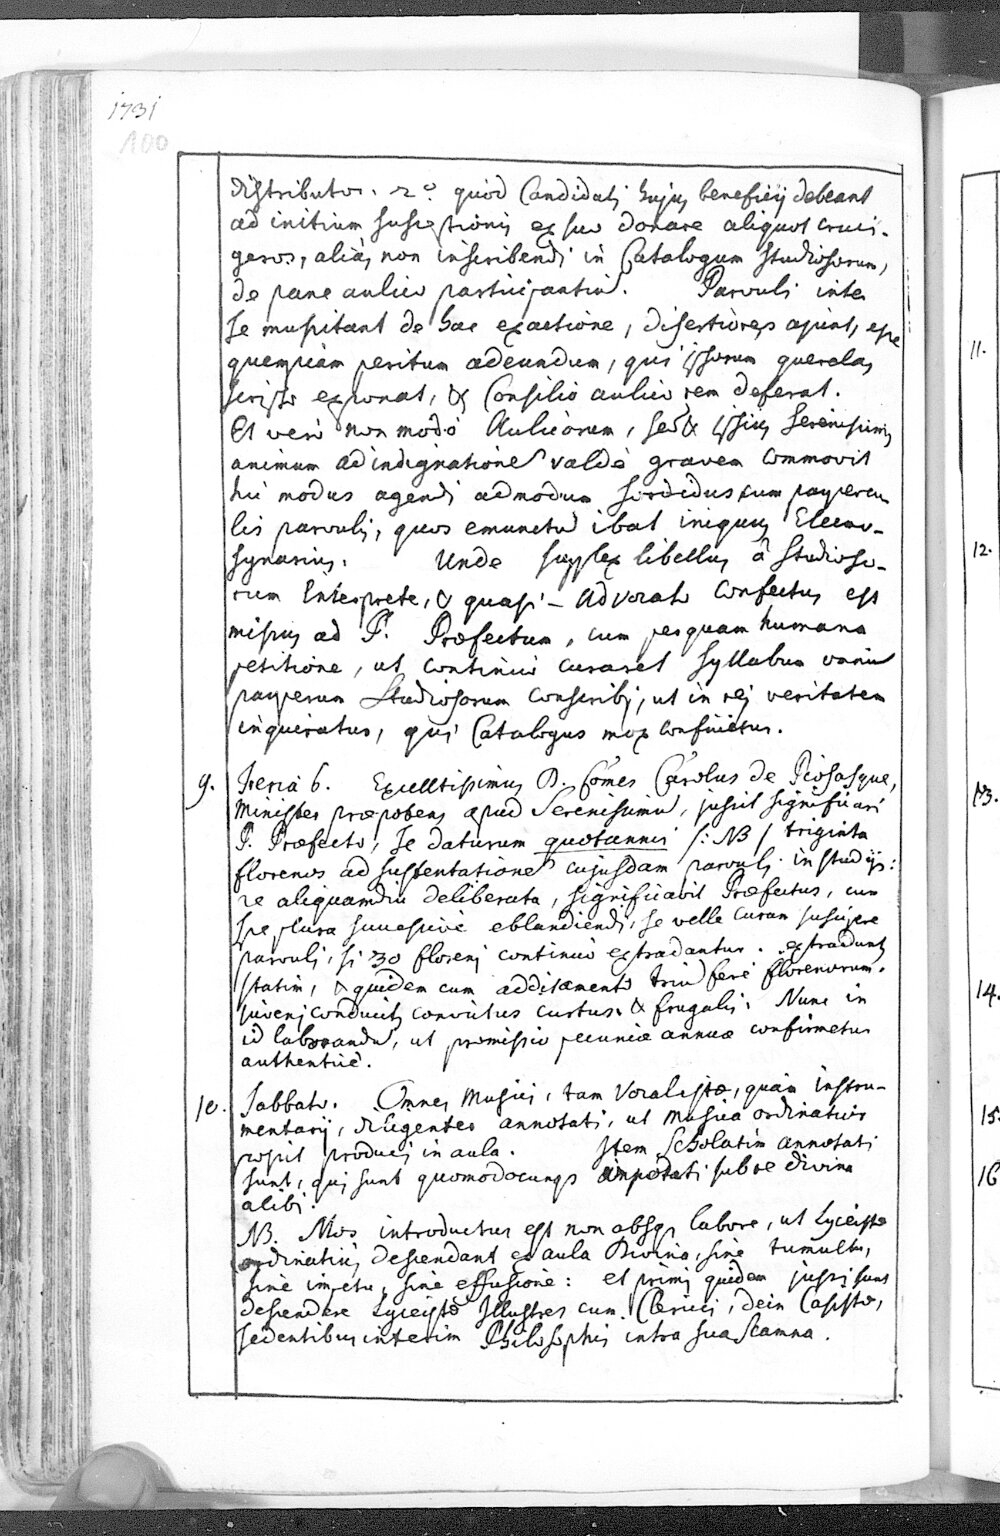 1731
100
distributor. 2.° quòd Candidati hujus beneficij debeant
ad initium susceptionis ex suo donare aliquot cruci-
geros, aliàs non inscribendi in Catalogum studiosorum,
de pane aulico participantiũ. Parvuli inter
se mussitant de hac exactione, disertiores ajunt, esse
quempiam peritum adeundum, qui ipsorum querelas
scripto exponat, & Consilio aulico rem deferat.
Et verò non modò Aulicorum, sed & ipsius Serenissimi
animum ad indignationẽ valdè gravem commovit
hic modus agendi admodum sordidus cum papercu
lis parvulis, quos emunctũ ibat iniquus Eleemo-
synarius. Unde supplex libellus â studioso-
rum interprete, & quasi-Advocato confectus est
missus ad P. Præfectum, cum perquam humana
petitione, ut continuò curaret syllabum omniũ
pauperum studiosorum conscribi, ut in rei veritatem
inquiratur, qui Catalogus mox conficietur.
9. Feria 6. Excellentissimus D. Comes Carolus de Piosasque,
Minister præpotens apud Serenissimũ, jussit significari
P. Præfecto, se daturum quotannis /: NB / triginta
florenos ad sustentationẽ cujusdam parvuli in studijs:
re aliquamdiu deliberata, significavit Præfectus, cum
spe plura successivè eblandiendi, se velle curam suscipere
parvuli, si 30 floreni continuò extradantur. extraduntur
statim, & quidem cum additamento triũ ferè florenorum.
juveni conducitur convictus curtus & frugalis. Nunc in
id laborandũ, ut promissio pecuniæ annuæ confirmetur
authenticè.
10. Sabbato. Omnes Musici, tam Vocalistæ, quàm instru-
mentarij, diligenter annotati, ut musica ordinatior
possit produci in aula. Item scholatim annotati
sunt, qui sunt quomodocunque impediti sub re divina
alibi.
NB. Mos introductus est non absque labore, ut Lyceistæ
ordinatius descendant ex aula Divino, sine tumultu,
sine impetu, sine effusione: et primi quidem jussi sunt
descendere Lyceistæ Illustres cum Clericis, dein Casistæ,
sedentibus interim Philosophis intra sua scamna.
11.
12.
13.
14.
15.
16